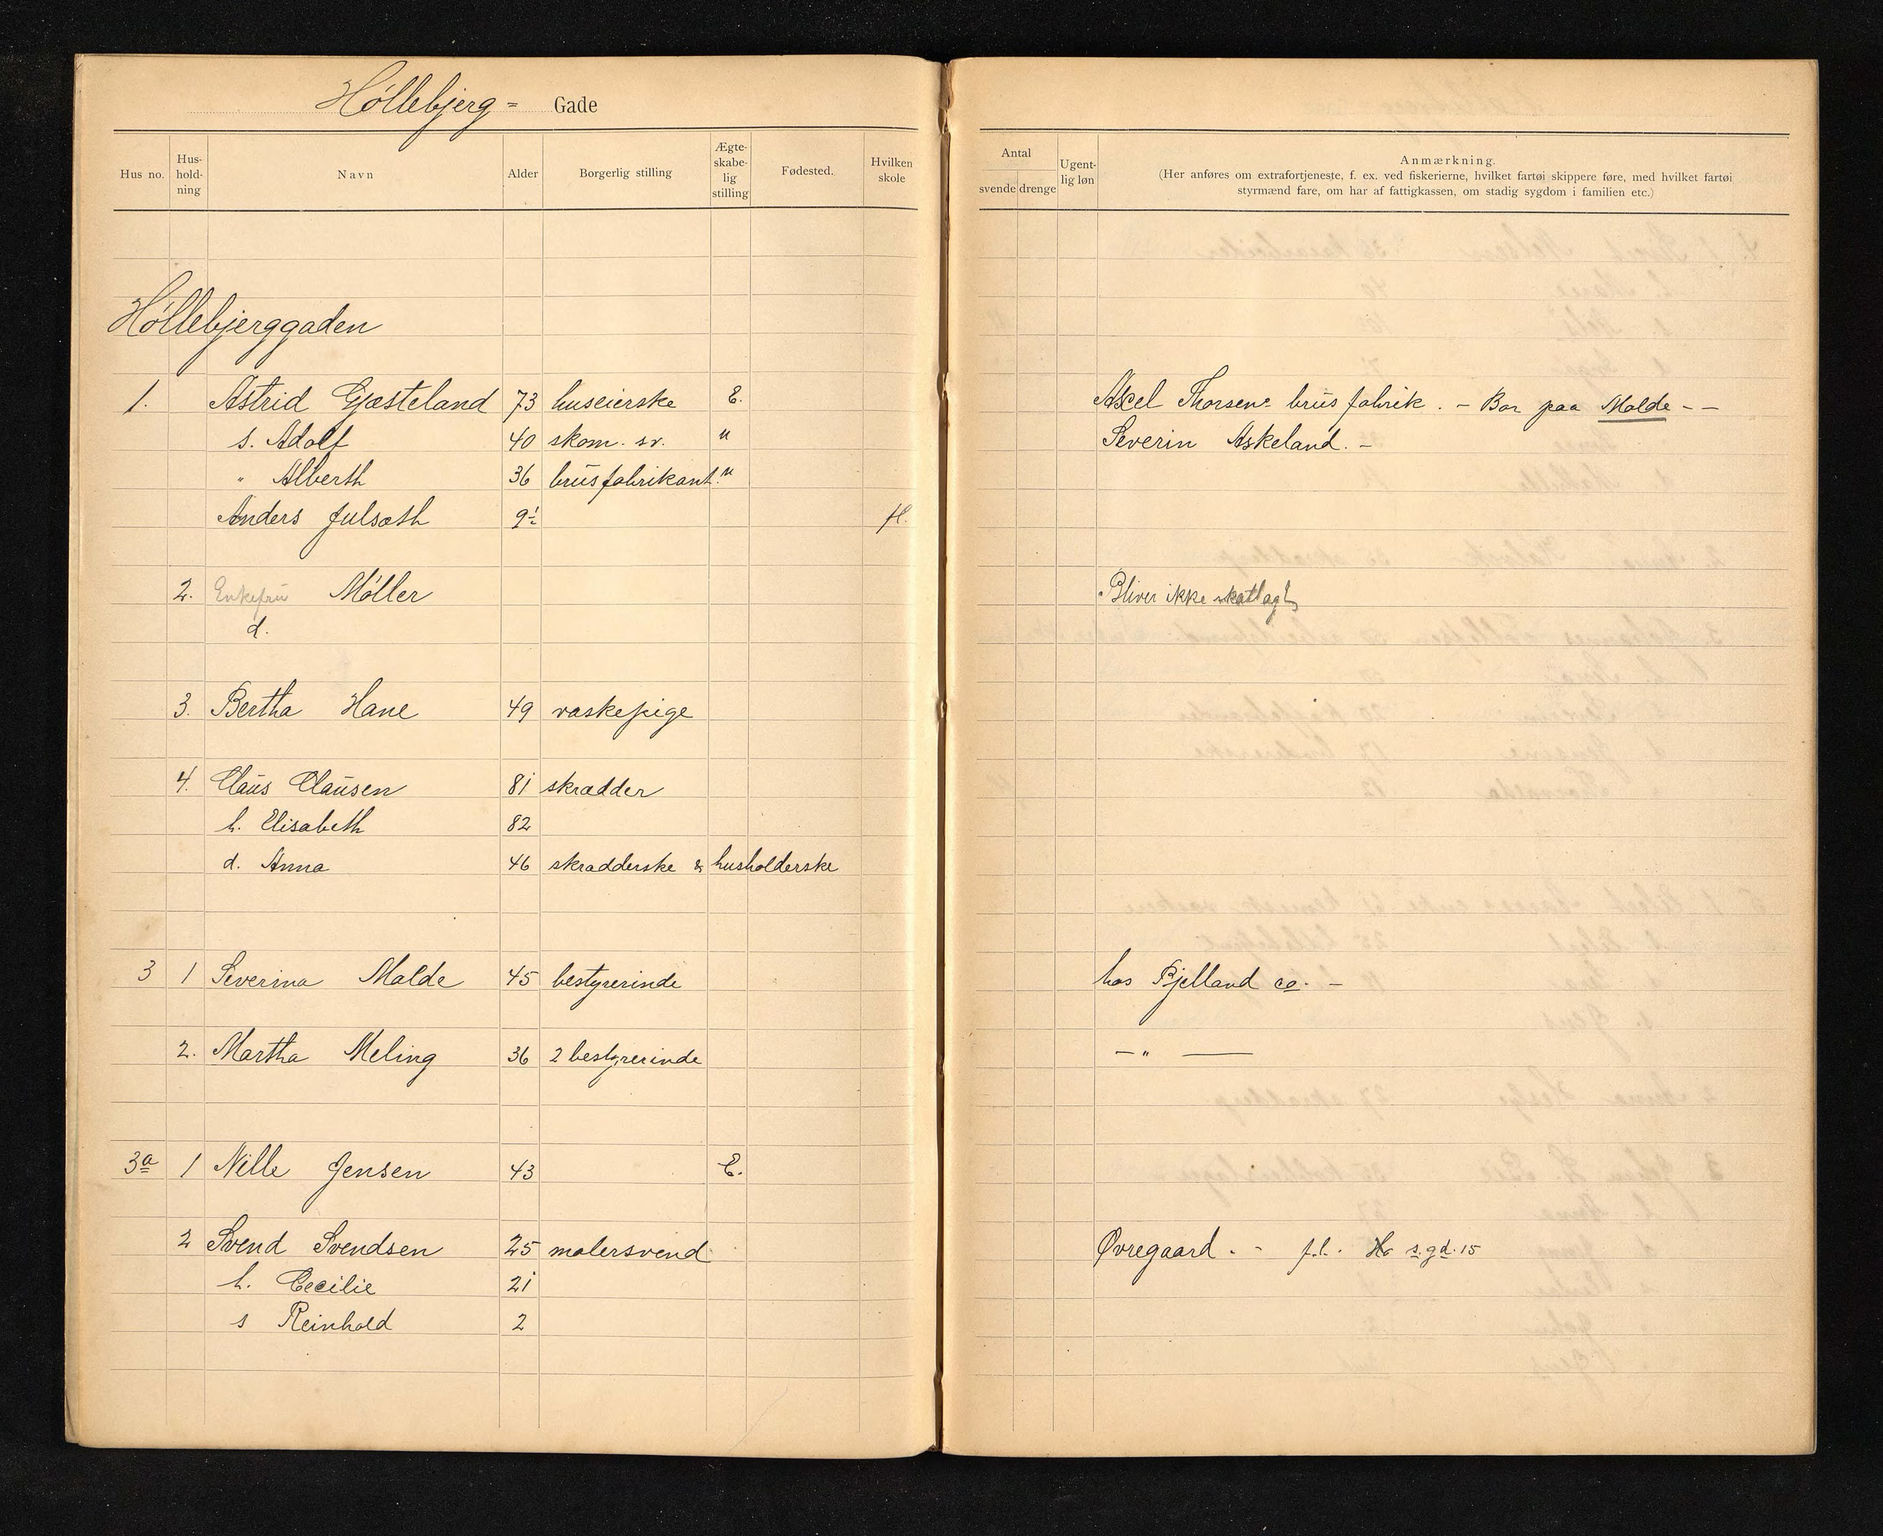 Høllebjerg- Gade
Hus no. Hus-hold-ning Navn Alder Borgerlig stilling Ægte-skabe-lig stilling Fødested. Hvilken skole
Antal svende drenge Ugent-lig løn Anmærkning.
(Her anføres om extrafortjeneste, f. ex. ved fiskerierne, hvilket fartøi skippere føre, med hvilket fartøi
styrmænd fare, om har af fattigkassen, om stadig sygdom i familien etc.)
Høllebjerggaden
1. Astrid Gjæsteland 73 huseierske E. Axel Thorsens brus fabrik. - Bor paa Molde - -
s. Adolf 40 skom. sv. u Severin Askeland. -
" Alberth 36 brusfabrikant. u
Anders Julsæth 9½ H.
2. Enkefru Møller Bliver ikke skatlagt
d.
3. Bertha Hane 49 vaskepige
4. Claus Clausen 81 skrædder
h. Elisabeth 82
d. Anna 46 skrædderske & husholderske
3 1 Severina Malde 45 bestyrerinde hos Bjelland co. -
2. Martha Meling 36 2 bestyrerinde - " -
3a 1 Nille Jensen 43 E.
2 Svend Svendsen 25 malersvend Øvregaard. - f.l. s.gd. 15
h. Cecilie 21
s Reinhold 2